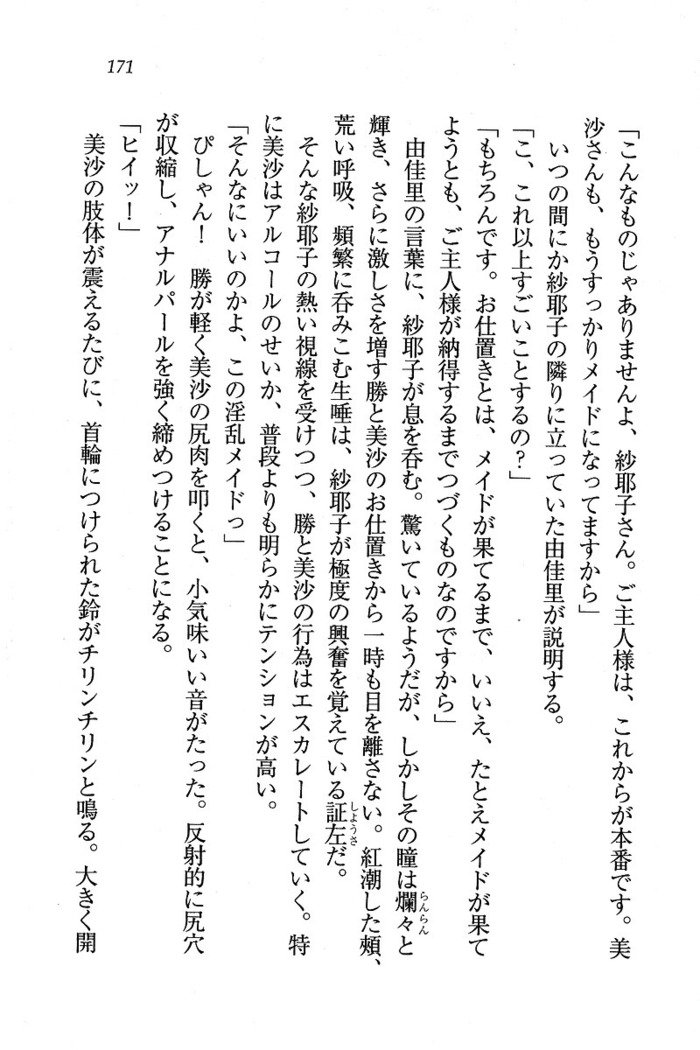 171
「こんなものじゃありませんよ、紗耶子さん。ご主人様は、これからが本番です。美
沙さんも、もうすっかりメイドになってますから」
いつの間にか紗耶子の隣りに立っていた由佳里が説明する。
「こ、これ以上すごいことするの?」
「もちろんです。お仕置きとは、メイドが果てるまで、いいえ、たとえメイドが果て
ようとも、ご主人様が納得するまでつづくものなのですから」
由佳里の言葉に、紗耶子が息を呑む。驚いているようだが、しかしその瞳は爛々と
輝き、さらに激しさを増す勝と美沙のお仕置きから一時も目を離さない。紅潮した頰、
荒い呼吸、頻繁に呑みこむ生唾は、紗耶子が極度の興奮を覚えている証左だ。
そんな紗耶子の熱い視線を受けつつ、勝と美沙の行為はエスカレートしていく。特
に美沙はアルコールのせいか、普段よりも明らかにテンションが高い。
「そんなにいいのかよ、この淫乱メイドっ」
ぴしゃん! 勝が軽く美沙の尻肉を叩くと、小気味いい音がたった。反射的に尻穴
が収縮し、アナルパールを強く締めつけることになる。
「ヒイッ!」
美沙の肢体が震えるたびに、首輪につけられた鈴がチリンチリンと鳴る。大きく開